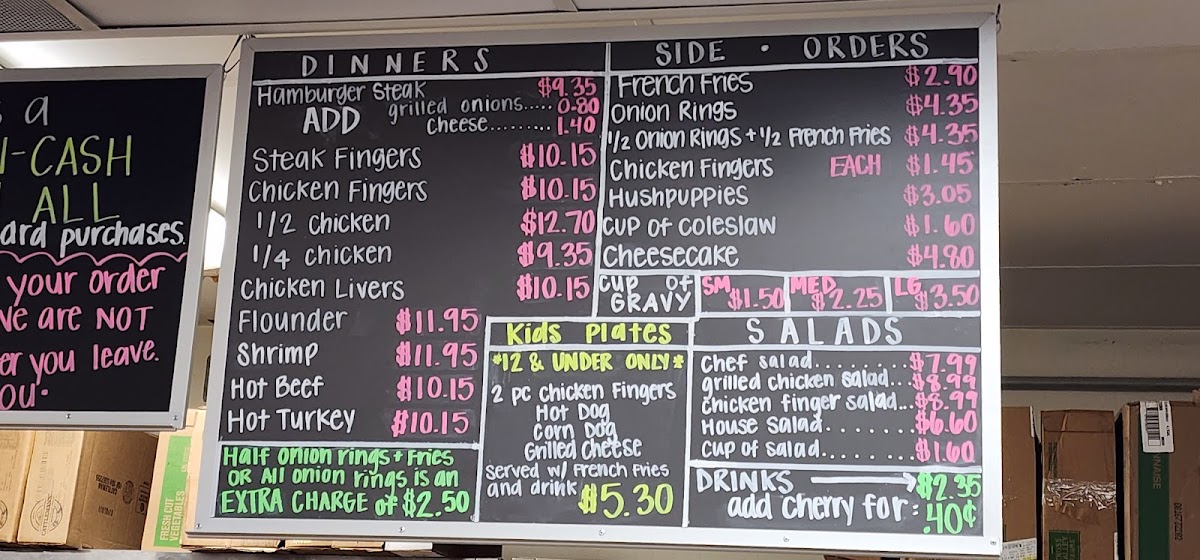 s a
-CASH
ALL
ard purchases.
your order
we are NOT
er you leave.
ou.
DINNERS
Hamburger Steak $9.35
ADD grilled onions..... 0.80
cheese......... 1.40
Steak Fingers $10.15
Chicken Fingers $10.15
1/2 chicken $12.70
1/4 chicken $9.35
Chicken Livers $10.15
Flounder $11.95
Shrimp $11.95
Hot Beef $10.15
Hot Turkey $10.15
Half onion rings + Fries
OR All onion rings is an
EXTRA CHARGE of $2.50
SIDE • ORDERS
French Fries $2.90
Onion Rings $4.35
1/2 Onion Rings + 1/2 French Fries $4.35
Chicken Fingers EACH $1.45
Hushpuppies $3.05
Cup of Coleslaw $1.60
Cheesecake $4.80
Cup of GRAVY SM $1.50 MED $2.25 LG $3.50
Kids Plates
*12 & UNDER ONLY*
2 pc chicken Fingers
Hot Dog
Corn Dog
Grilled Cheese
Served w/ French Fries
and drink $5.30
SALADS
Chef salad........ $7.99
grilled chicken salad... $8.99
chicken finger salad... $8.99
House Salad....... $6.60
Cup of salad....... $1.60
DRINKS $2.35
add cherry for: .40¢
FRESH CUT
VEGETABLES